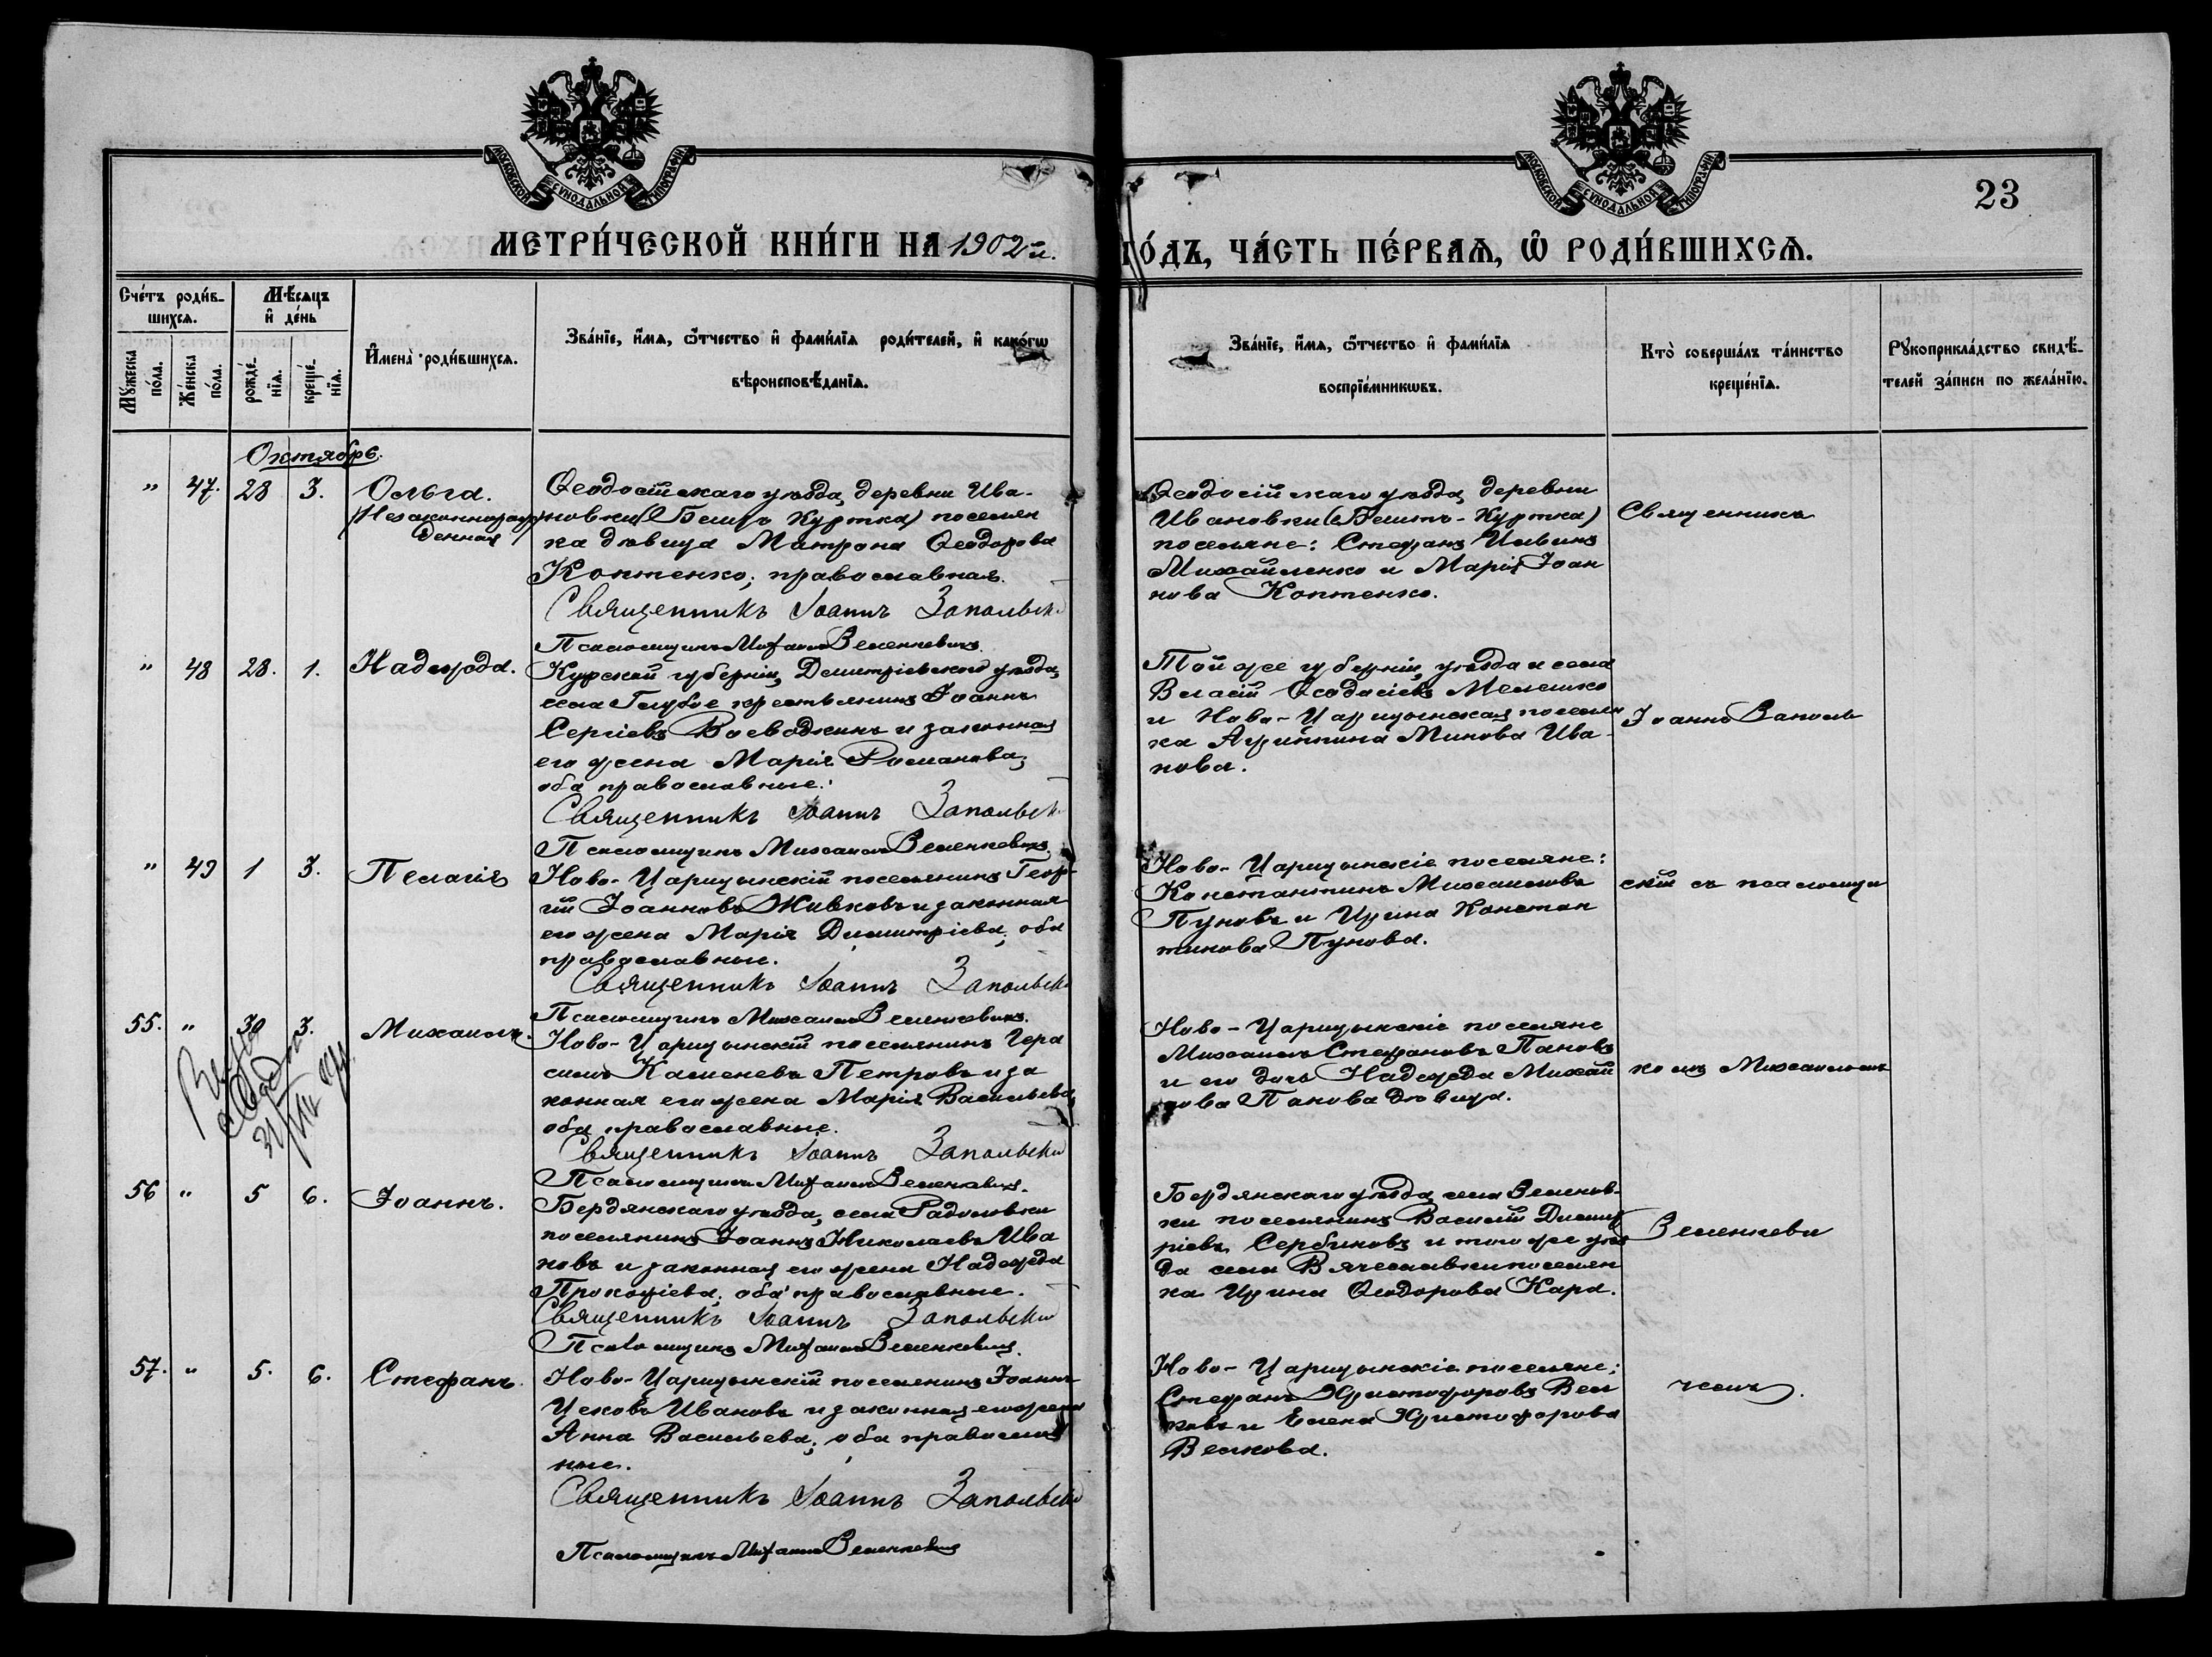 МОСКОВСКОЙ СѴНОДАЛЬНОЙ ТИПОГРАФІИ
МОСКОВСКОЙ СѴНОДАЛЬНОЙ ТИПОГРАФІИ
23
МЕТРИ́ЧЕСКОЙ КНИ́ГИ НА 1902 й.
ГО́ДЪ, ЧА́СТЬ ПЕ́РВАѦ, Ѽ РОДИ́ВШИХСѦ.
Сче́тъ роди́в-
шихсѧ.
Мѣ́сѧцъ
и҆ де́нь
Мꙋ́жеска
по́ла.
Же́нска
по́ла.
рожде́-
нїѧ.
креще́-
нїѧ.
И҆мена̀ роди́вшихсѧ.
Зва́нїе, и҆́мѧ, ѻ҆́тчество и҆ фами́лїѧ роди́телей, и҆ како́гѡ
вѣроисповѣ́данїѧ.
Зва́нїе, и҆́мѧ, ѻ҆́тчество и҆ фами́лїѧ
воспрїе́мникѡвъ.
Кто̀ соверша́лъ та́инство
креще́нїѧ.
Рꙋкоприкла́дство свидѣ́-
телей за́писи по жела́нїю.
Октябрь.
" 47. 28 3. Ольга.
(Незаконнорож
денная)
Ѳеодосійскаго уѣзда, деревни Ива-
новки (Бешъ Куртка) поселян
ка дѣвица Матрона Ѳеодорова
Коптенко; православная.
Священникъ Іоаннъ Запольскі
Псаломщикъ Михаилъ Зеленкевичъ.
Ѳеодосійскаго уѣзда, деревни
Ивановки (Бешъ-Куртка)
поселяне: Стефанъ
Михайленко и Марія Іоан
нова Коптенко.
Священникъ
" 48 28. 1. Надежда.
Курской губерніи, Димитріевскаго уѣзда,
села Голубое крестьянинъ Іоаннъ
Сергіевъ Воеводкинъ и законная
его жена Марія Романова;
оба православные.
Священникъ Іоаннъ Запольск
Псаломщикъ Михаилъ Зеленкевичъ.
Той же губерніи, уѣзда и села
Власій Ѳеодосіевъ Мелешко
и Ново-Царицынская поселян
ка Агриппина Минова Ива-
нова.
Іоаннъ Заполь
" 49 1 3. Пелагія
Ново-Царицынскій поселянинъ Геор-
гій Іоанновъ Живковъ и законная
его жена Марія Димитріева; оба
православные.
Священникъ Іоаннъ Запольскі
Псаломщикъ Михаилъ Зеленкевичъ.
Ново-Царицынскіе поселяне:
Константинъ Михаиловъ
Пуновъ и Ирина Констан
тинова Пунова.
скій съ псаломщи
55. " 30 3. Михаилъ.
31/VIII
Ново-Царицынскій поселянинъ Гера
симъ Каменевъ Петровъ и за
конная его жена Марія Васильева,
оба православные.
Священникъ Іоаннъ Запольскій
Псаломщикъ Михаилъ Зеленкевичъ.
Ново-Царицынскіе поселяне
Михаилъ Стефановъ Пановъ
и его дочь Надежда Михай
лова Панова дѣвица.
комъ Михаиломъ
56 " 5 6. Іоаннъ.
Бердянскаго уѣзда, села Радоловки
поселянинъ Іоаннъ Николаевъ Ива
новъ и законная его жена Надежда
Прокофіева; оба православные.
Священникъ Іоаннъ Запольскій
Псаломщикъ Михаилъ Зеленкевичъ.
Бердянскаго уѣзда, села Зеленов-
ки поселянинъ Василій Димит
ріевъ Сербиновъ и того же уѣз
да села Вячеславки поселян
ка Ирина Ѳеодорова Кара.
Зеленкеви
57. " 5. 6. Стефанъ.
Ново-Царицынскій поселянинъ Іоаннъ
Цековъ Ивановъ и законная его жена
Анна Васильева; оба православ
ные.
Священникъ Іоаннъ Запольскій
Псаломщикъ Михаилъ Зеленкевичъ
Ново-Царицынскіе поселяне;
Стефанъ Христофоровъ Вел
ковъ и Елена Христофорова
Велкова.
чемъ.